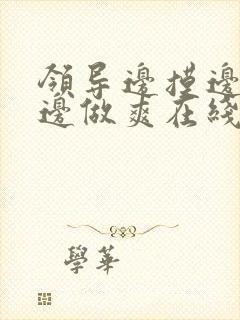 領导邊摸邊
邊做爽在綫
學華